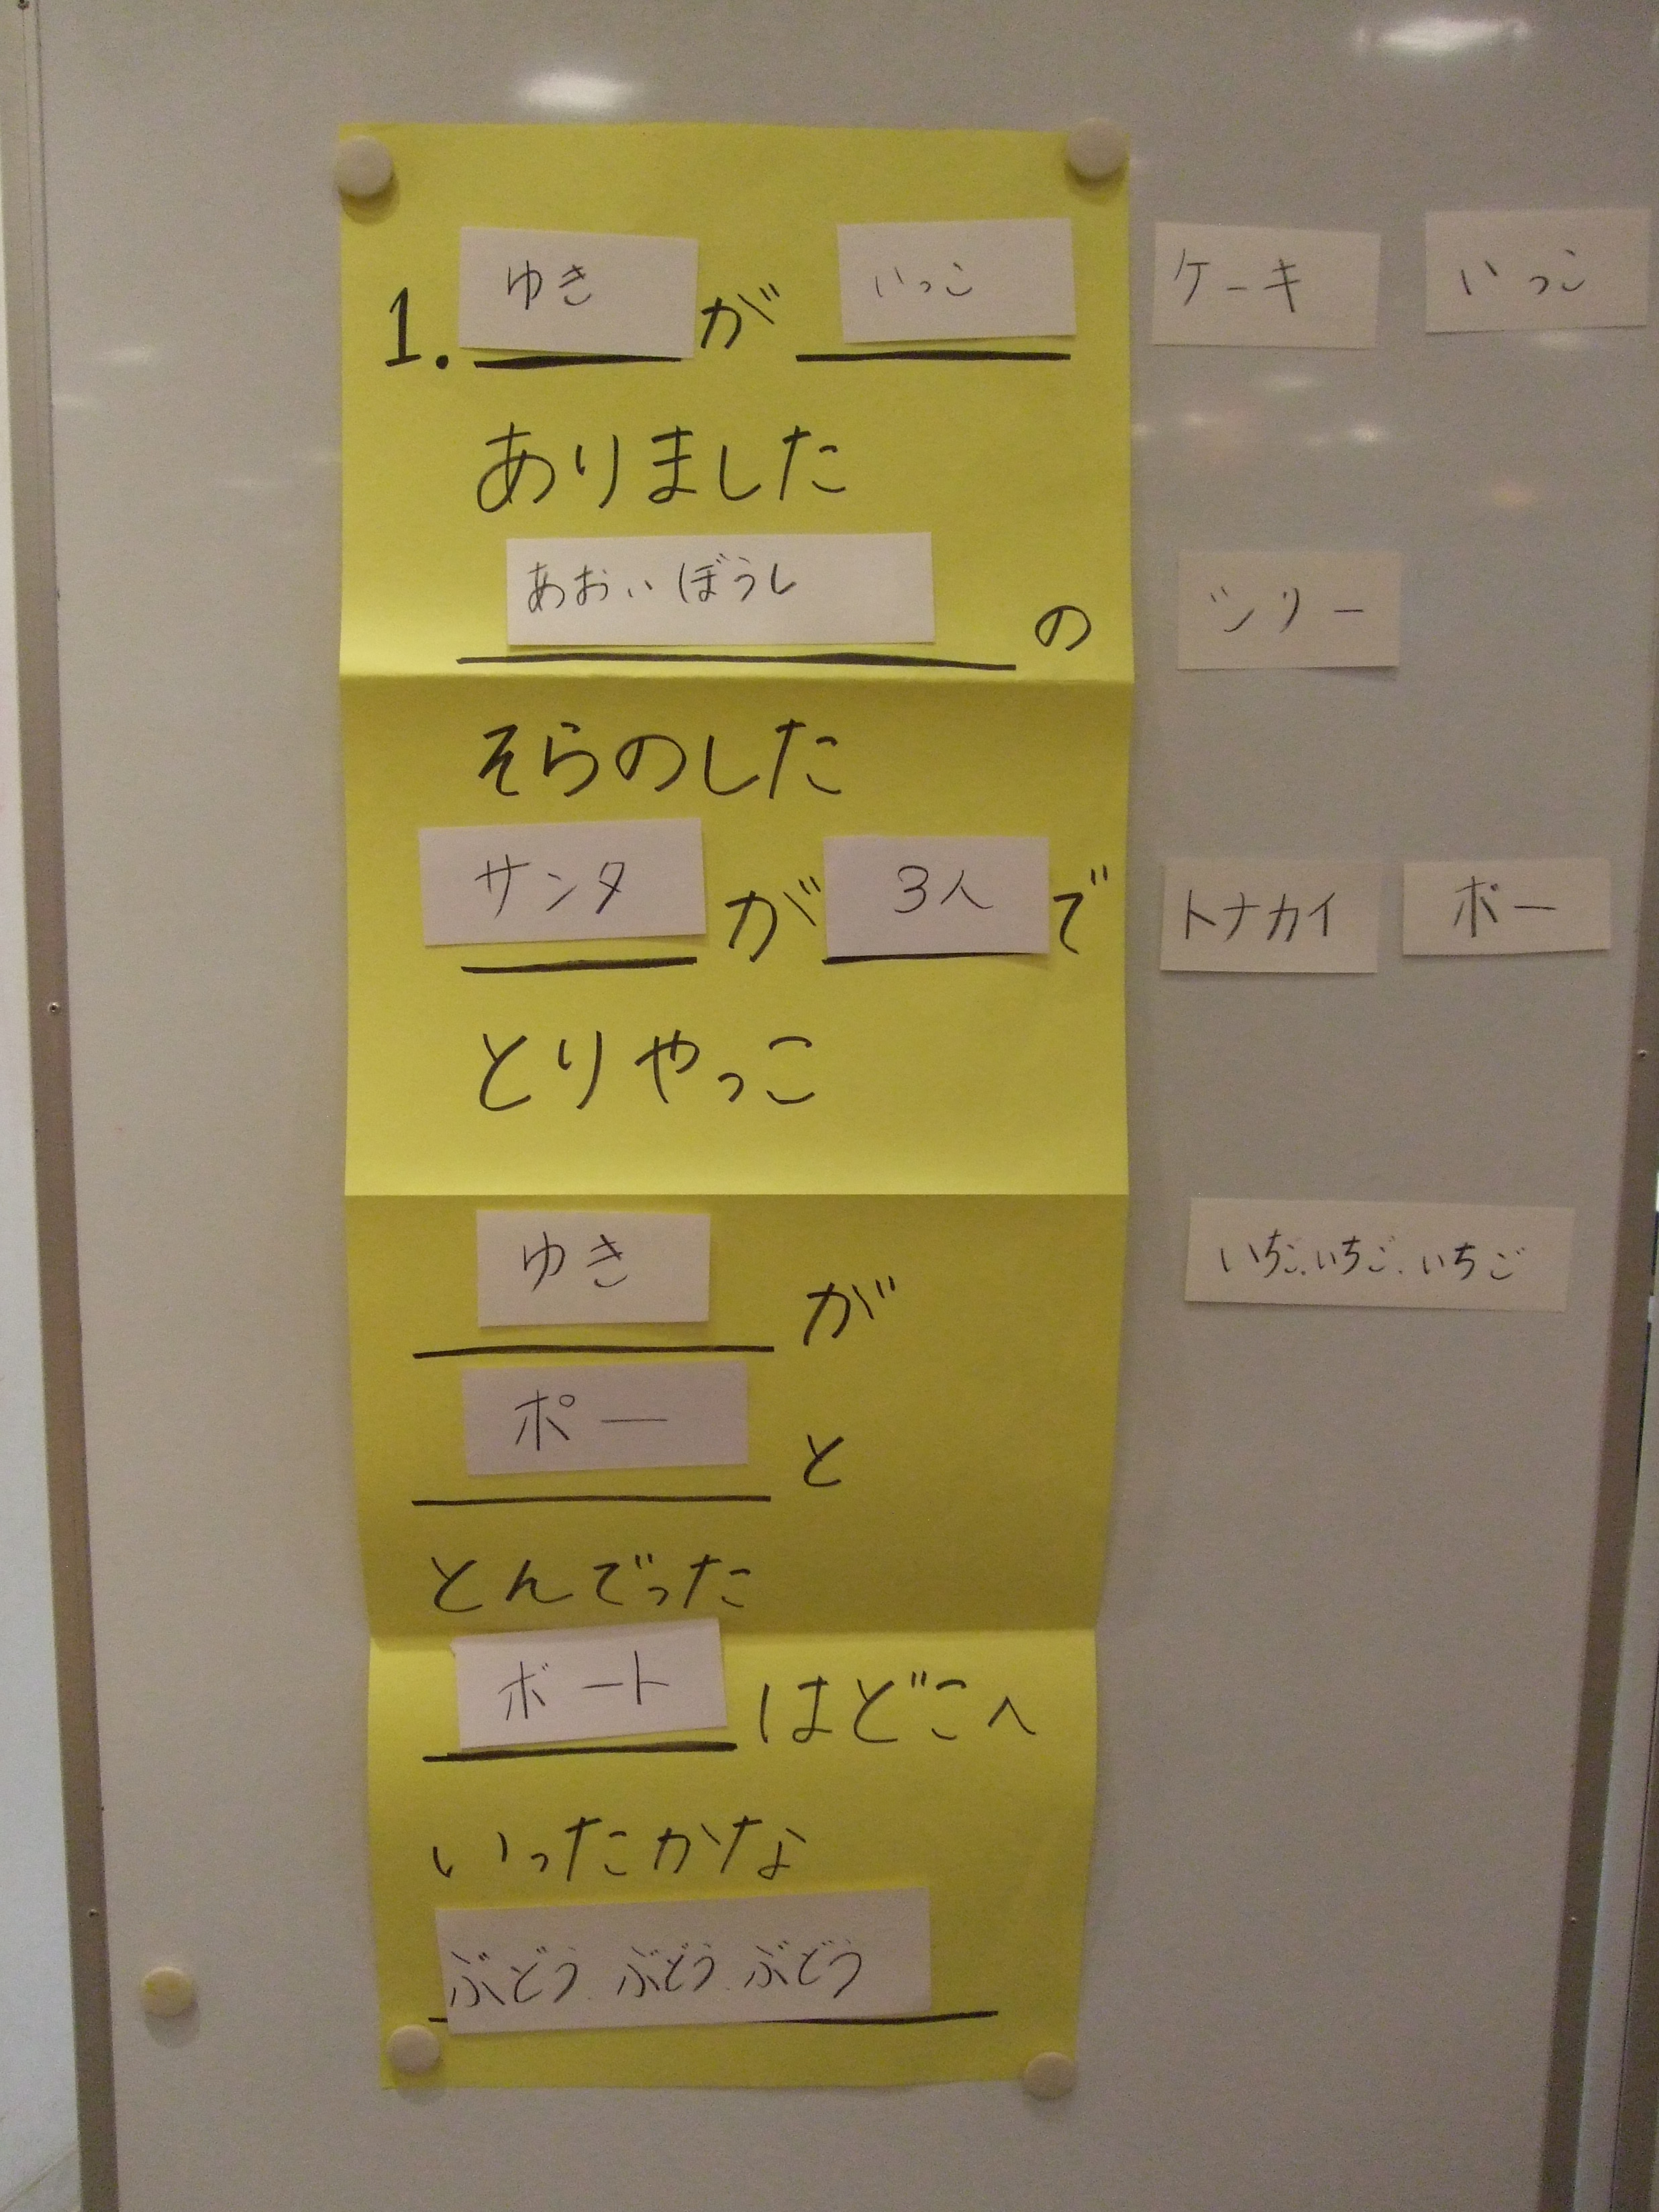 1. ゆき が いっこ
ありました
あおいぼうし の
そらのした
サンタ が 3人 で
とりやっこ
ゆき が
ポー と
とんでった
ボート はどこへ
いったかな
ぶどう ぶどう ぶどう
ケーキ いっこ
ツリー
トナカイ ポー
いちご、いちご、いちご